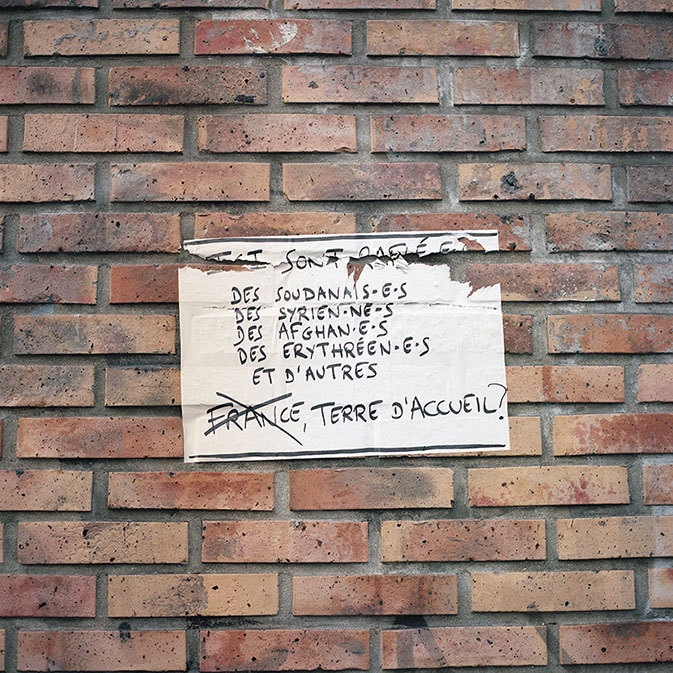 ICI SONT RAFLÉ·E·
DES SOUDANAIS·E·S
DES SYRIEN·NE·S
DES AFGHAN·E·S
DES ERYTHRÉEN·E·S
ET D'AUTRES
FRANCE, TERRE D'ACCUEIL?